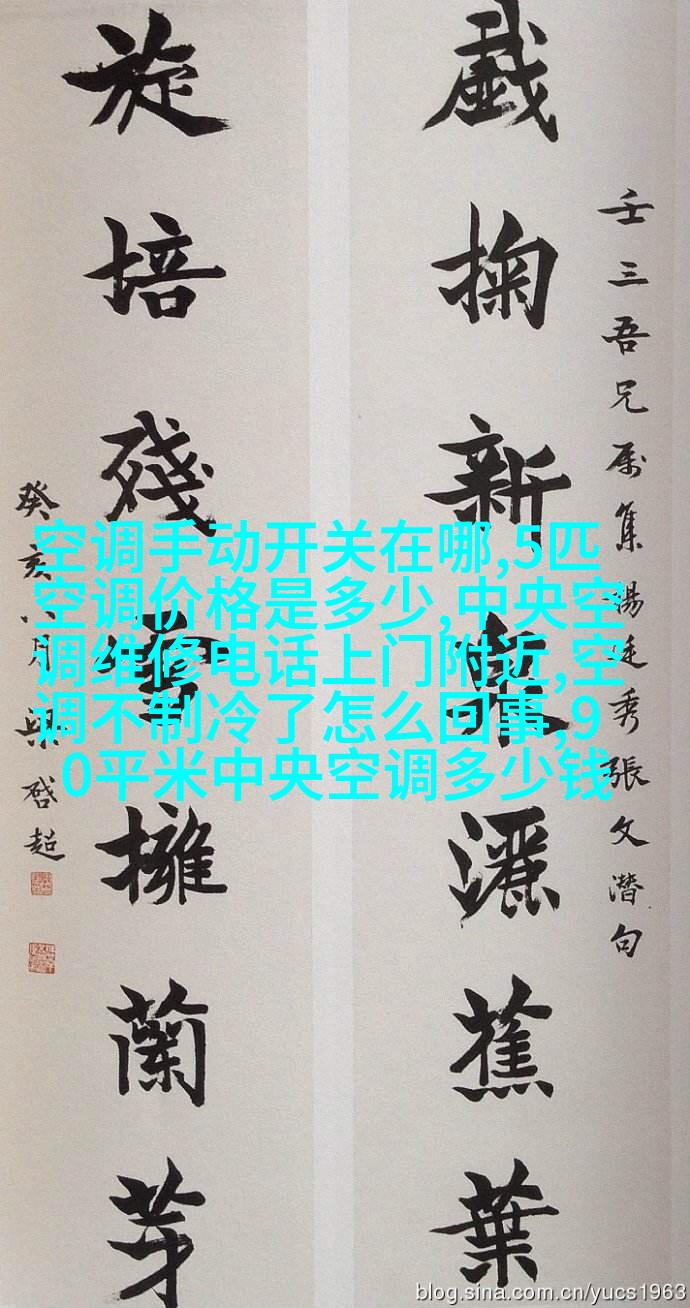 壬三吾兄属集湯廷秀張文潛句
戲掬新泉灑蕉葉
旋培殘雪擁蘭芽
癸亥八月梁啓超
空调手动开关在哪,5匹
空调价格是多少,中央空
调维修电话上门附近,空
调不制冷了怎么回事,9
0平米中央空调多少钱
blog.sina.com.cn/yucs1963